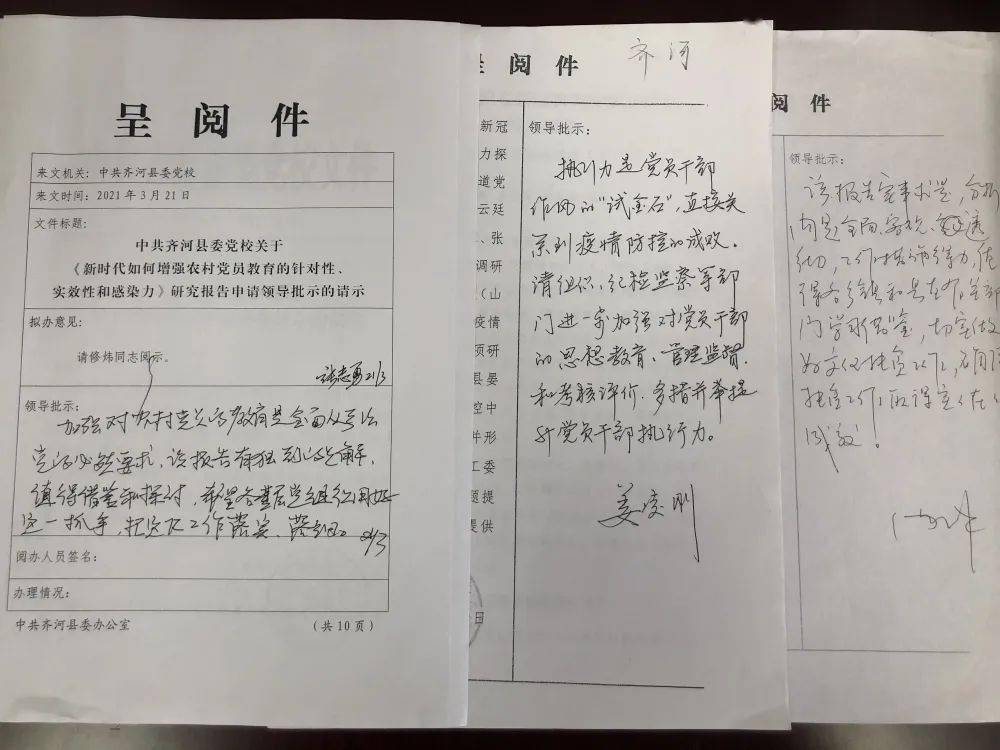 呈 阅 件
来文机关：中共齐河县委党校
来文时间：2021 年 3 月 21 日
文件标题：
中共齐河县委党校关于
《新时代如何增强农村党员教育的针对性、
实效性和感染力》研究报告申请领导批示的请示
拟办意见：
请修炜同志阅示。
张志勇 21/3
领导批示：
加强对农村党员的教育是全面从严治
党的必然要求，该报告有独到的见解，
值得借鉴和探讨，希望各基层党组织用好
这一抓手，把党建工作落实、落细。
阅办人员签名：
办理情况：
中共齐河县委办公室
（共 10 页）
阅 件
齐河
新冠
力探
道党
云廷
、张
调研
（山
疫情
项研
县晏
控中
件形
工委
题提
提供
日
领导批示：
执行力是党员干部
作风的“试金石”，直接关
系到疫情防控的成败。
请组织、纪检监察等部
门进一步加强对党员干部
的思想教育、管理监督
和考核评价，多措并举提
升党员干部执行力。
姜凌刚
阅 件
领导批示：
该报告实事求是，分析
问题全面、客观、透
得各乡镇和县直有关部
门学习借鉴，切实做
成效！